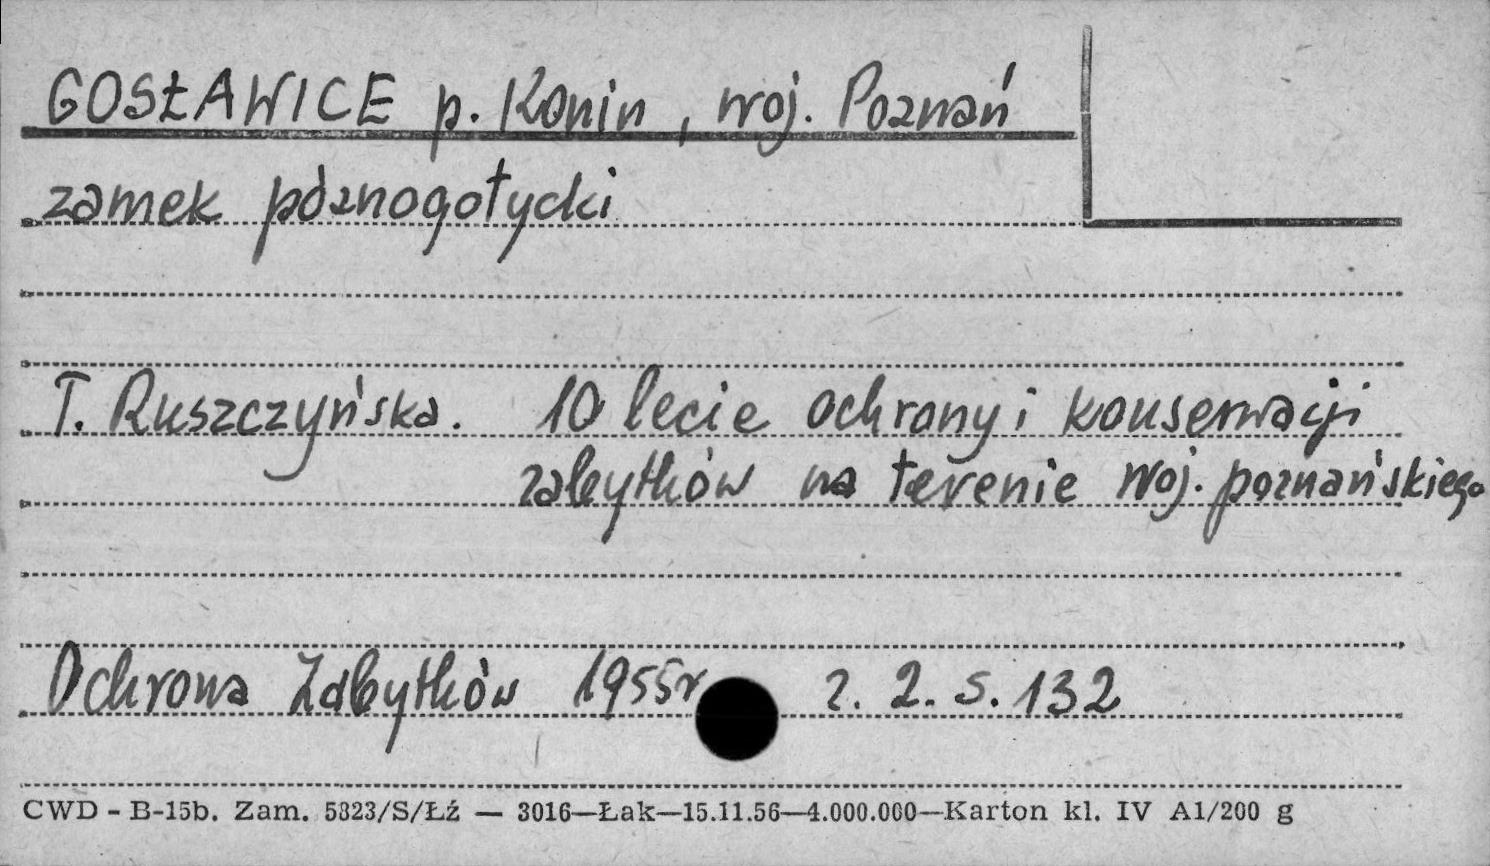 GOSŁAWICE p. Konin, woj. Poznań
zamek póznogotycki
T. Ruszczyńska. 10 lecie ochrony i konserwacji
zabytków na terenie woj. poznańskiego
Ochrona Zabytków 1955r z. 2. s. 132
CWD - B-15b. Zam. 5823/S/Łź — 3016—Łak—15.11.56—4.000.000—Karton kl. IV A1/200 g